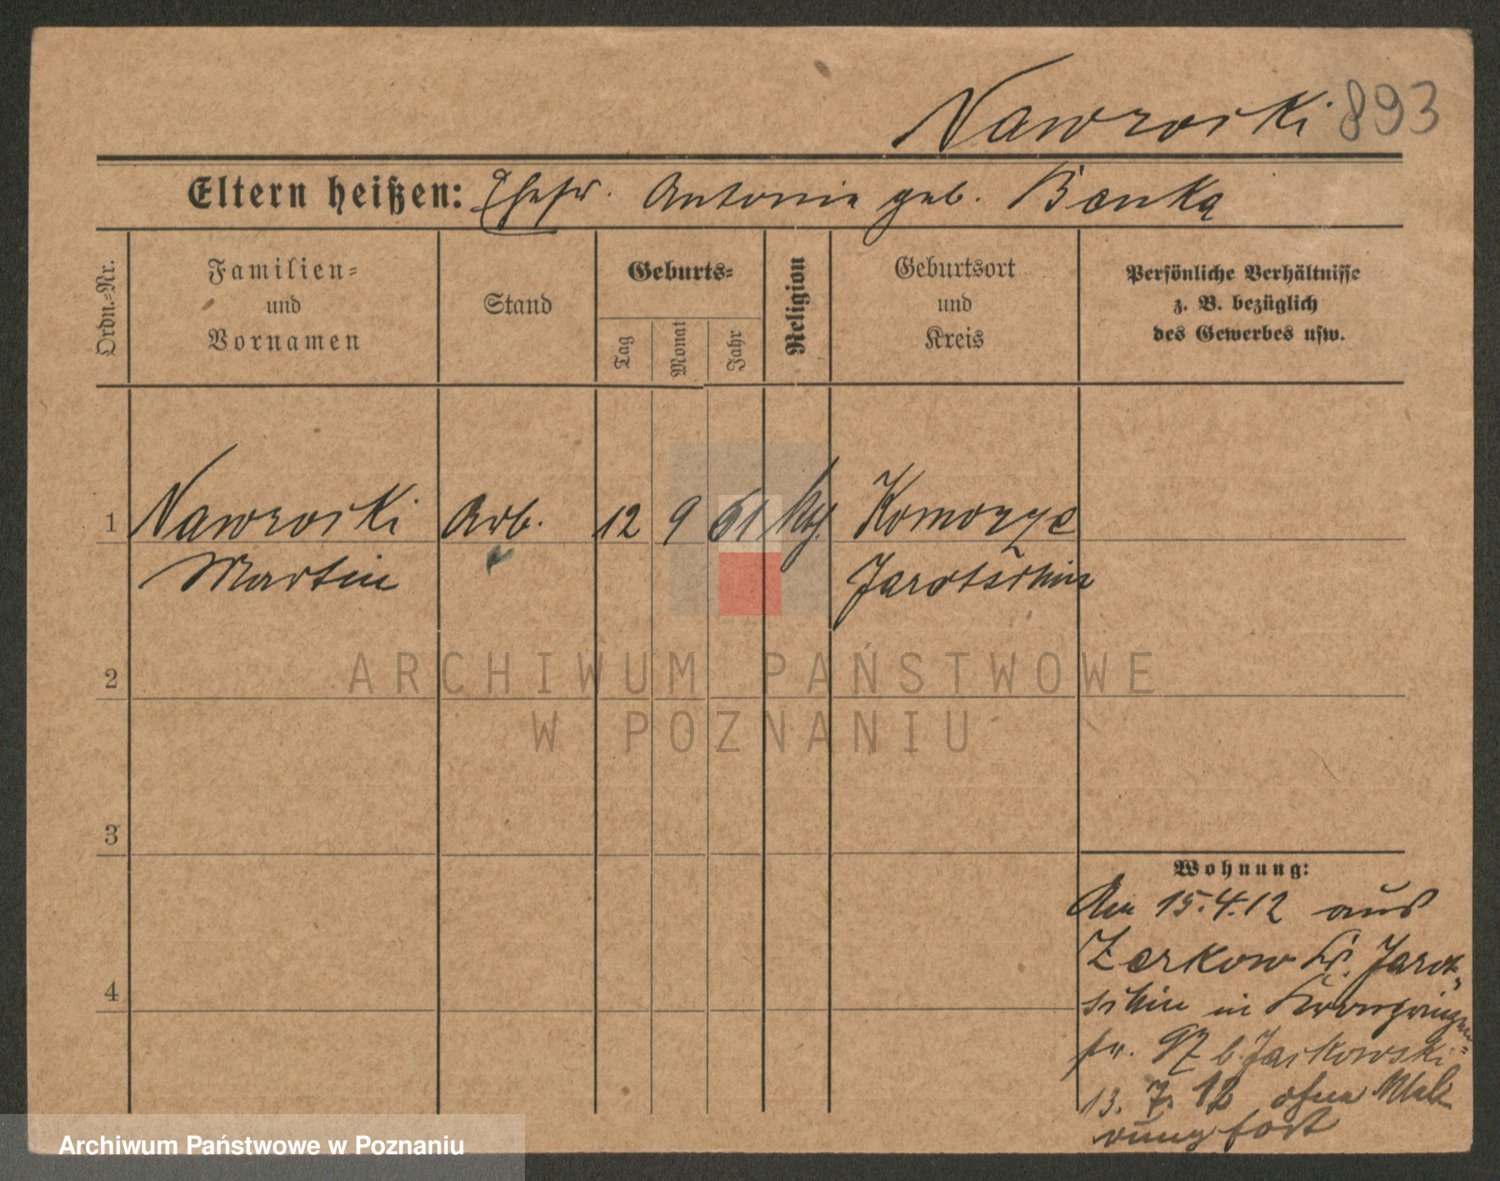 Nawrocki 893
Eltern heißen: Ehefr. Antonie geb. Benka
Ordn.=Nr.
Familien=
und
Vornamen
Stand
Geburts=
Tag
Monat
Jahr
Religion
Geburtsort
und
Kreis
Persönliche Verhältnisse
z. B. bezüglich
des Gewerbes usw.
1 Nawrocki Arb. 12 9 61 Komorze
Martin Jarotschin
2
3
4
Wohnung:
Am 15.4.12 aus
Zerkow Kr. Jarot-
schin in Kronprinzen=
str. 97 b. Jackowski
13. 7. 12 ohne Mel-
dung fort
ARCHIWUM PAŃSTWOWE
W POZNANIU
Archiwum Państwowe w Poznaniu